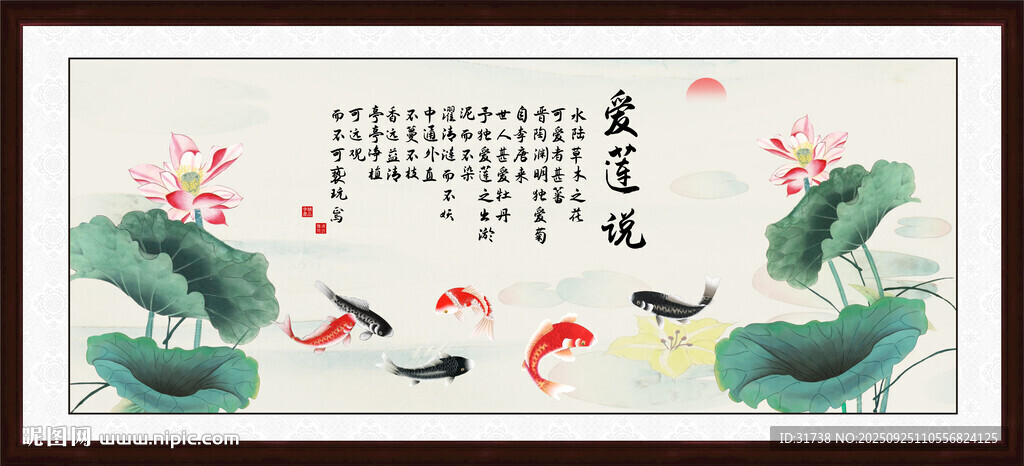 爱莲说
水陆草木之花
可爱者甚蕃
晋陶渊明独爱菊
自李唐来
世人甚爱牡丹
予独爱莲之出淤
泥而不染
濯清涟而不妖
中通外直
不蔓不枝
香远益清
亭亭净植
可远观
而不可亵玩焉
昵图网 www.nipic.com
ID:31738 NO:20250925110556824125